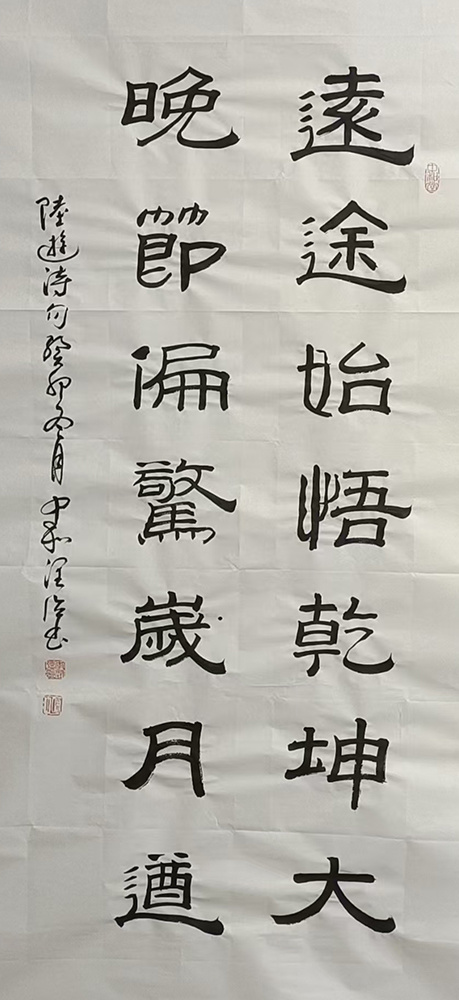 遠途始悟乾坤大
晚節偏驚歲月遒
陸游詩句癸卯冬月